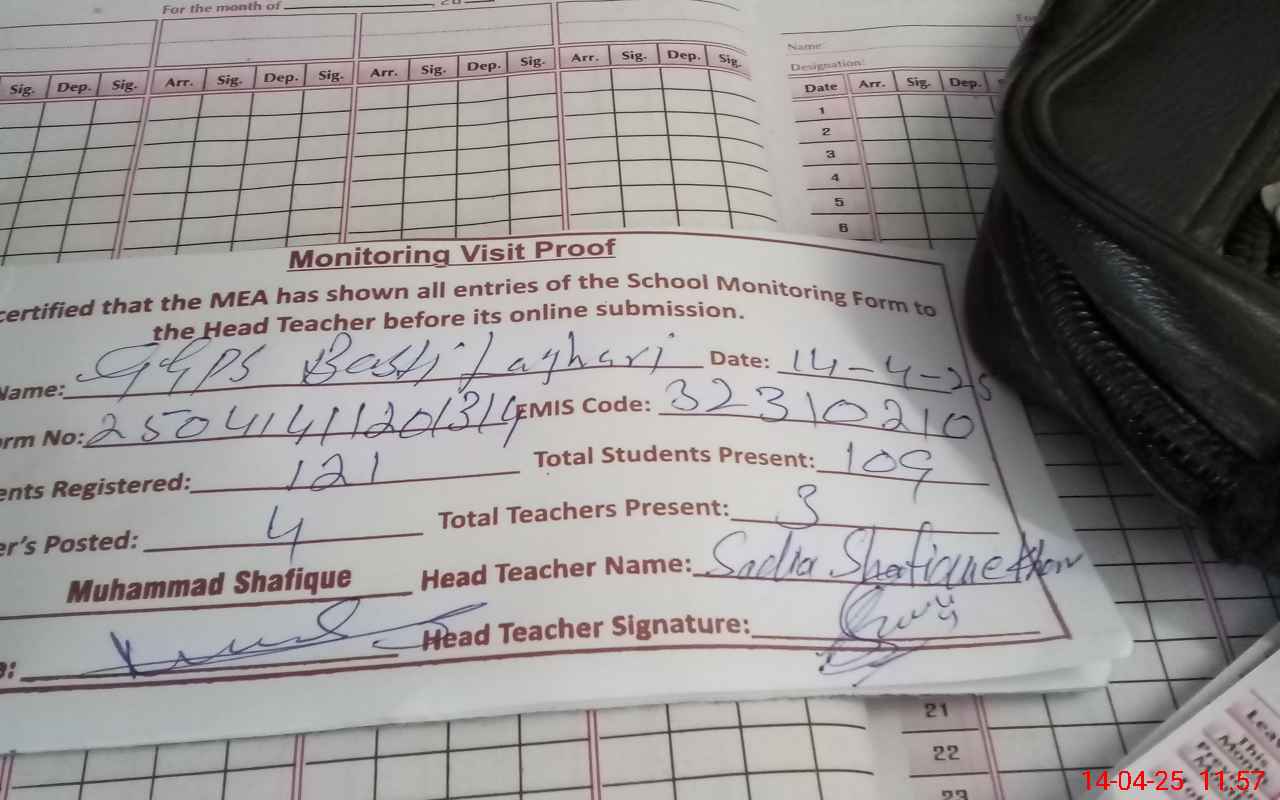 For the month of
Sig. Dep. Sig. Arr. Sig. Dep. Sig. Arr. Sig. Dep. Sig. Arr. Sig. Dep. Sig.
Name:
Designation:
Date Arr. Sig. Dep.
1
2
3
4
5
6
Monitoring Visit Proof
certified that the MEA has shown all entries of the School Monitoring Form to
the Head Teacher before its online submission.
Name: GGPS Basti Laghari Date: 14-4-25
orm No: 25041411201314 EMIS Code: 32310210
ents Registered: 121 Total Students Present: 109
er's Posted: 4 Total Teachers Present: 3
Muhammad Shafique Head Teacher Name: Sadia Shafique Khan
Head Teacher Signature:
21
22
23
14-04-25 11:57